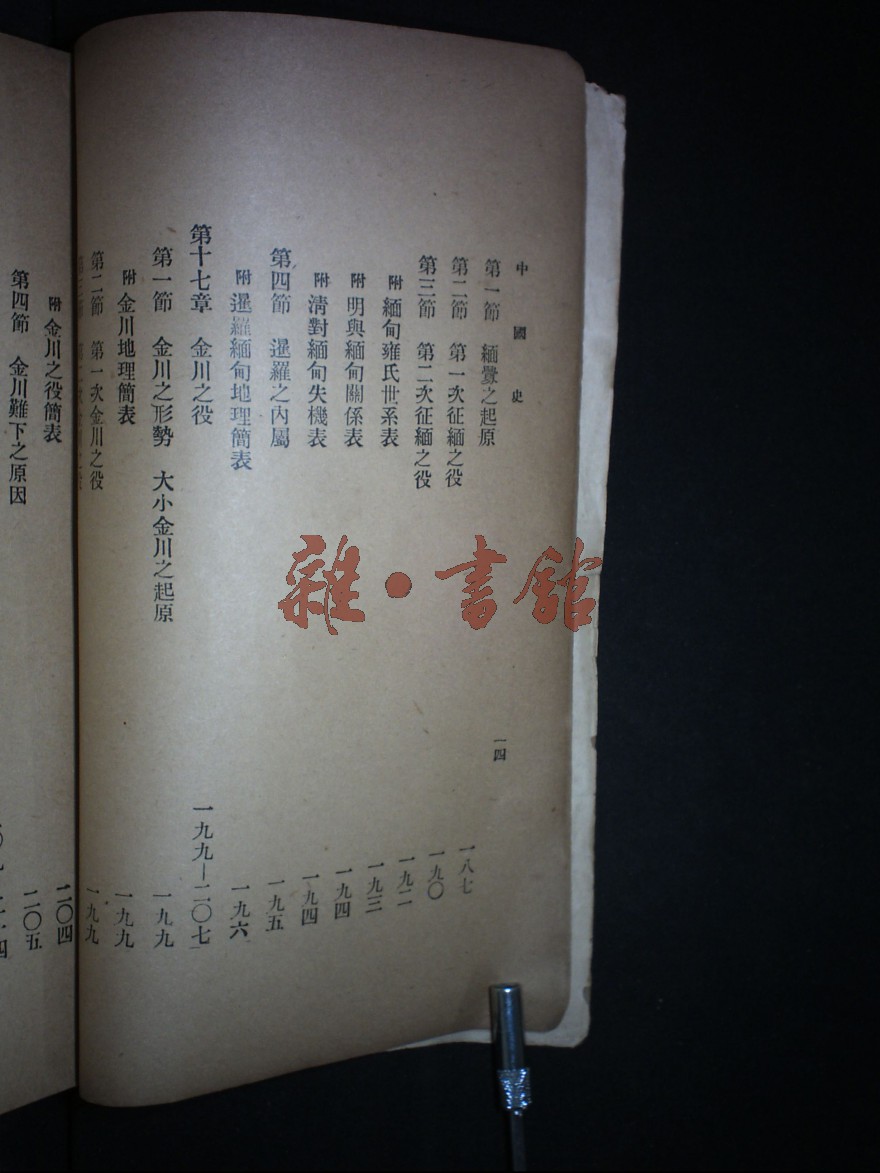 中國史
一四
第一節 緬釁之起原 一八七
第二節 第一次征緬之役 一九〇
第三節 第二次征緬之役 一九二
附 緬甸雍氏世系表 一九三
附 明與緬甸關係表 一九四
附 清對緬甸失機表 一九四
第四節 暹羅之內屬 一九五
附 暹羅緬甸地理簡表 一九六
第十七章 金川之役 一九九—二〇七
第一節 金川之形勢 大小金川之起原 一九九
附 金川地理簡表 一九九
第二節 第一次金川之役 一九九
附 金川之役簡表 二〇四
第四節 金川難下之原因 二〇五
雜·書館